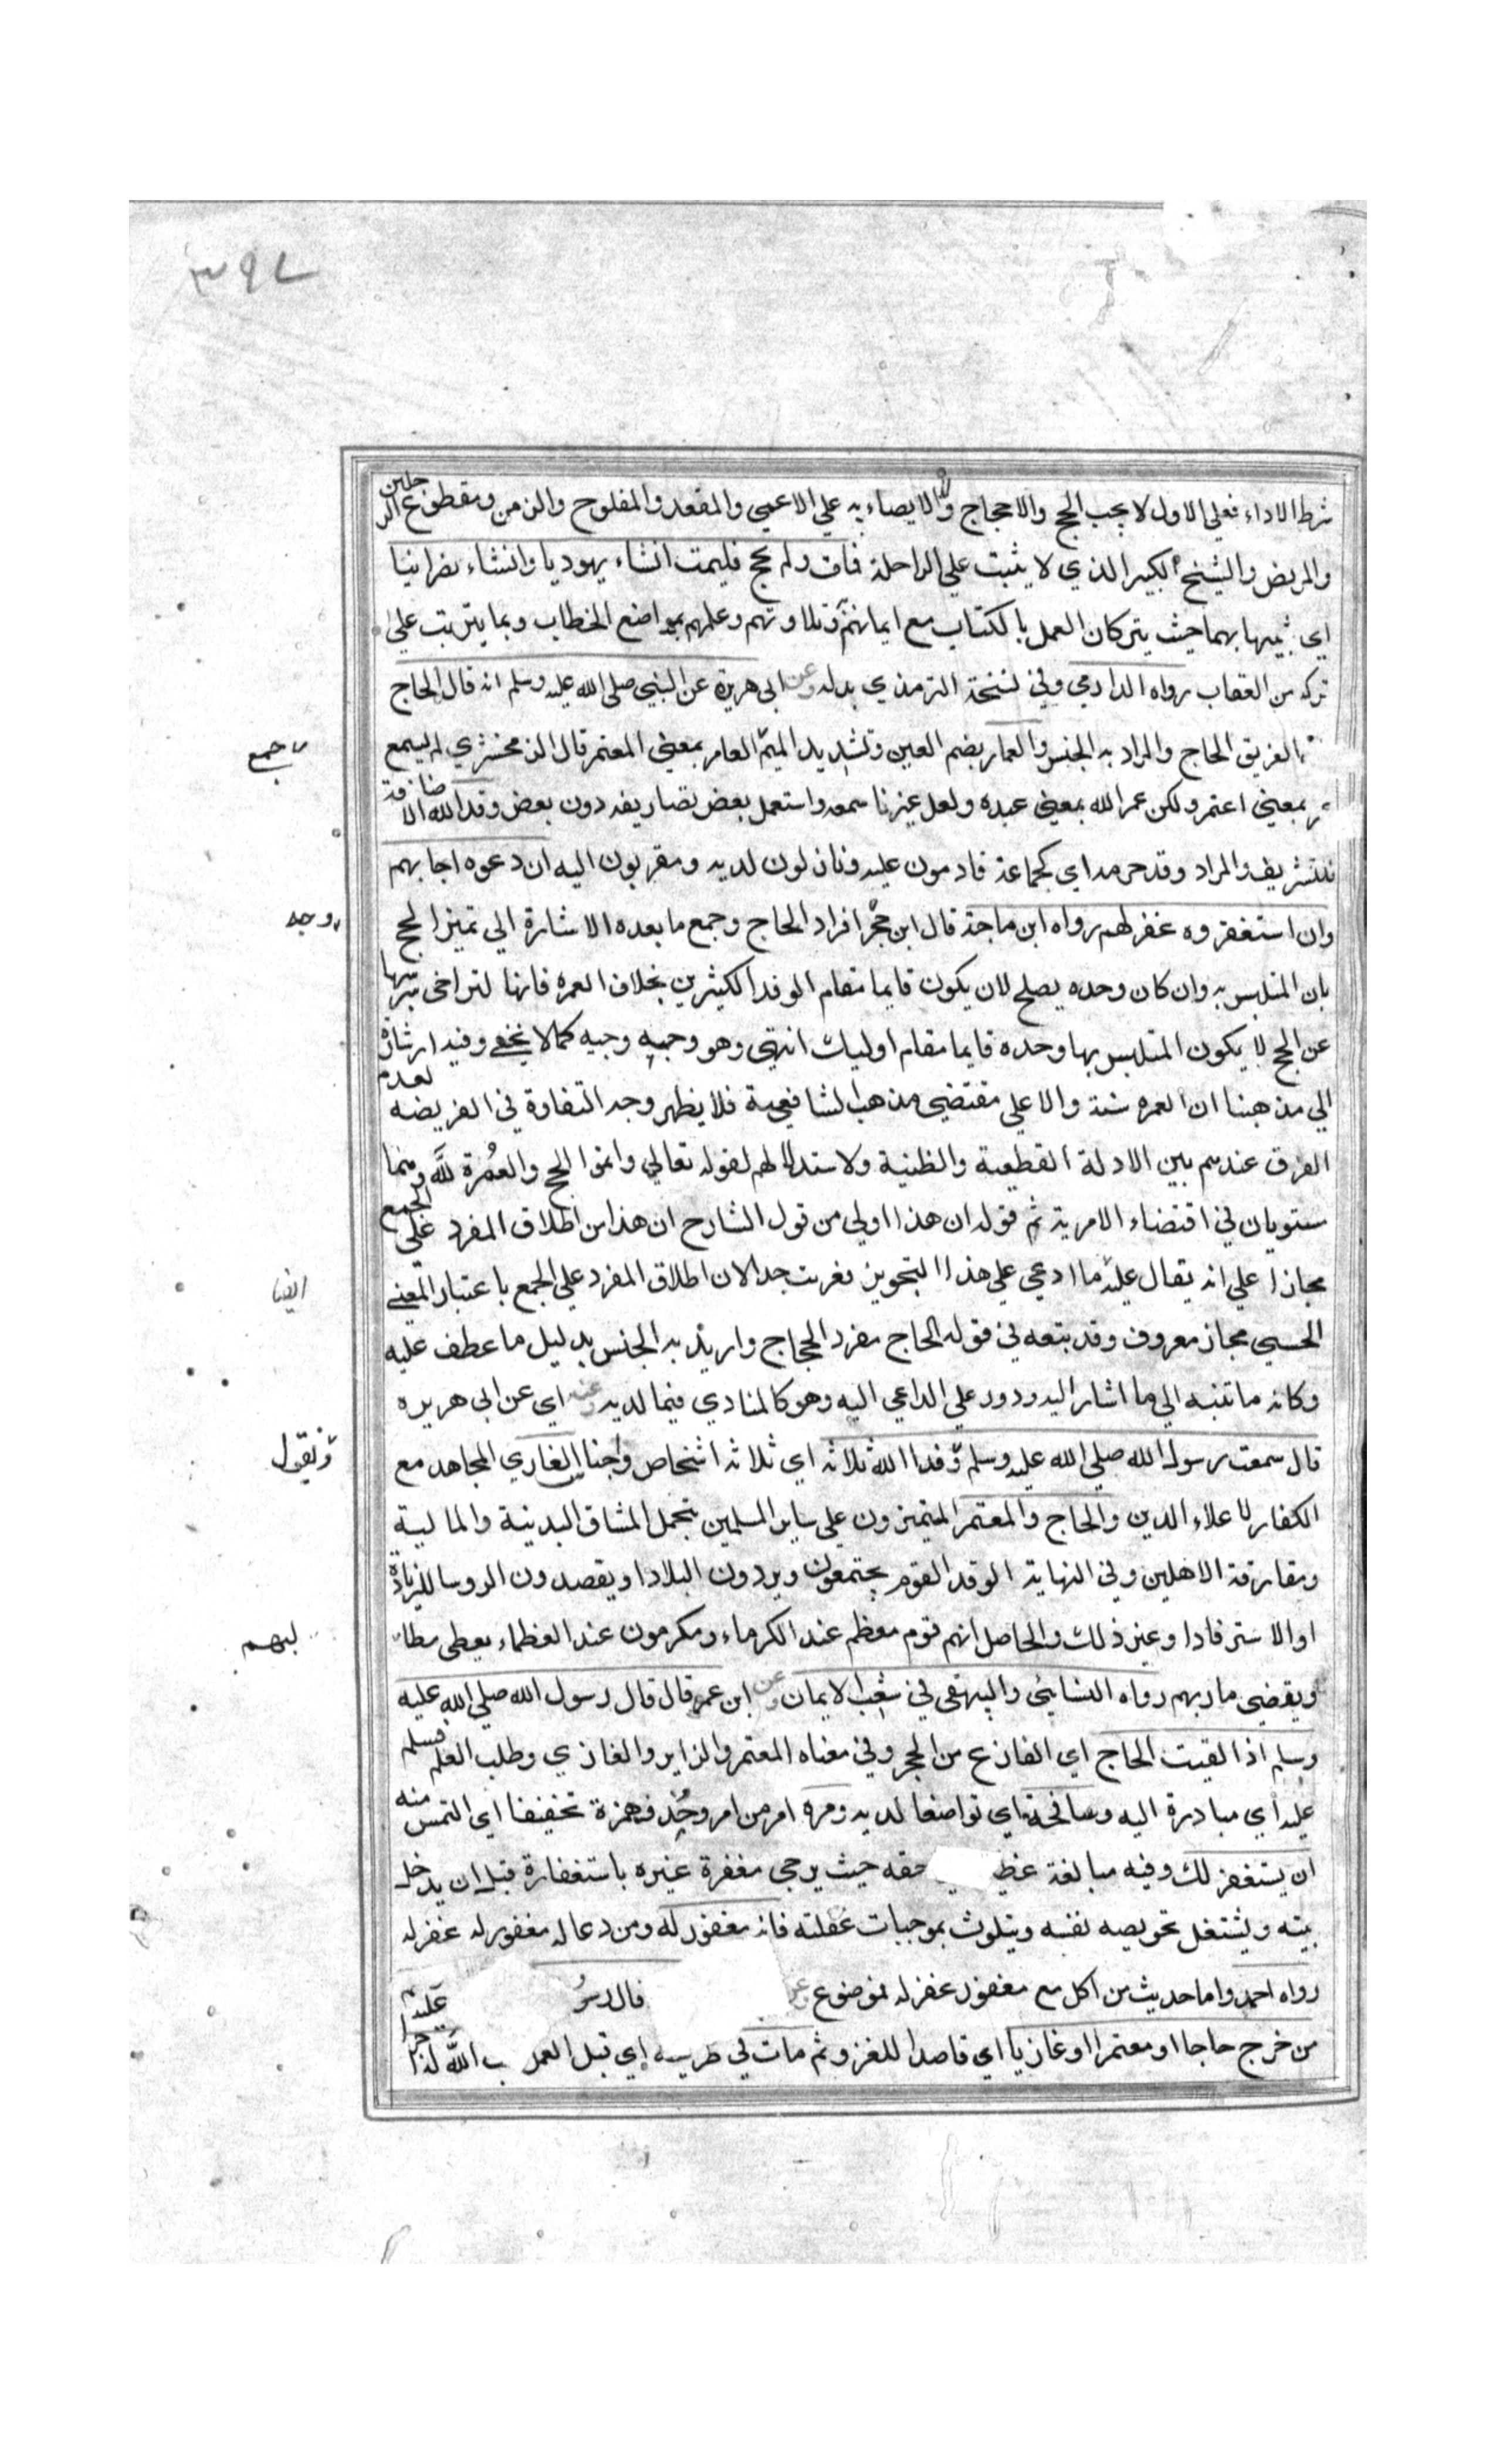 ٣٩٧
شرط الاداء فعلي الاول لا يجب الحج والاحجاج ولا الايصاء به علي الاعمي والمقعد والمفلوح والزمن ومقطوع الرجلين
والمريض والشيخ الكبير الذي لا يثبت علي الراحلة فمات ولم يحج فليمت انشاء يهوديا وانشاء نصرانيا
اي شبيها بهما حيث يتركان العمل بالكتاب مع ايمانهم وتلاوتهم وعلمهم بمواضع الخطاب وبما يترتب علي
تركه من العقاب رواه الدارمي وفي نسخة الترمذي بدله وعن ابي هريرة عن النبي صلي الله عليه وسلم انه قال الحاج
الفريق الحاج والمراد به الجنس والعمار بضم العين وتشديد الميم العامر بمعني المعتمر قال الزمخشري لم يسمع
بمعني اعتمر ولكن عمر الله بمعني عبده ولعل غيرنا سمعه واستعمل بعض تصاريفه دون بعض وفد الله الاضافة
للتشريف والمراد وفد حرمه اي كجماعة قادمون عليه ونازلون لديه ومقربون اليه ان دعوه اجابهم
وان استغفروه غفر لهم رواه ابن ماجة قال ابن حجر افراد الحاج وجمع ما بعده الاشارة الي تميز الحج
بان المتلبس به وان كان وحده يصلح لان يكون قايما مقام الوفد الكثيرين بخلاف العمره فانها لتراخي مرتبتها
عن الحج لا يكون المتلبس بها وحده قايما مقام اوليك انتهي وهو وجيه وجيه كما لا يخفي وفيه اشارة
الي مذهبنا ان العمره سنة والا علي مقتضي مذهب الشافعية فلا يظهر وجه التفاوة في الفريضه لعدم
الفرق عندهم بين الادلة القطعية والظنية ولاستدلالهم لقوله تعالي واتموا الحج والعمرة لله وهما
ستويان في اقتضاء الامرية ثم قوله ان هذا اولي من قول الشارح ان هذا من اطلاق المفرد علي الجمع
مجازا علي انه يقال عليه ما ادعي علي هذا التجويز نغربت جدا لان اطلاق المفرد علي الجمع باعتبار المعني
الحسي مجاز معروف وقد بتعه في قوله الحاج مفرد الحجاج واريد به الجنس بدليل ما عطف عليه
وكانه ما تنبه الي ما اشار اليه ودود علي الداعي اليه وهو كالمنادي فيما لديه وعنه اي عن ابي هريره
قال سمعت رسول الله صلي الله عليه وسلم وفد الله ثلاثه اي ثلاثه اشخاص واجنا الغازي المجاهد مع
الكفار لاعلاء الدين والحاج والمعتمر المتميزون علي ساير المسلمين بتحمل المشاق البدنية والمالية
ومفارقة الاهلين وفي النهاية الوفد القوم يجتمعون ويردون البلاد او يقصدون الروسا للزيادة
او الاسترفادا وغير ذلك والحاصل انهم قوم معظم عند الكرماء ومكرمون عند العظماء يعطي مطا
ويقضي ماربهم رواه النسائي والبيهقي في شعب الايمان وعن ابن عمر قال قال رسول الله صلي الله عليه
وسلم اذا القيت الحاج اي الفازع من الحجر وفي معناه المعتمر والزاير والغازي وطلب العلم فسلم
عليه اي مبادرة اليه وصافحه اي تواضعا لديه ومره امر من امر وحذف همزة تخفيفا اي التمس منه
ان يستغفر لك وفيه مبالغة عظيـ حقه حيث يرجي مغفرة غيره باستغفارة قبل ان يدخل
بيته ويشتغل بخويصه نفسه ويتلوث بموجبات غفلته فانه مغفور له ومن دعا له مغفور له غفر له
رواه احمد واما حديث من اكل مع مغفور غفر له فموضوع وعن قال رسو عليه
من خرج حاجا او معتمرا او غازيا اي قاصدا للغزو ثم مات في طريـه اي قبل العمل ـب الله له اجرا
جمع
وجه
ايضا
ونقول
لبهم